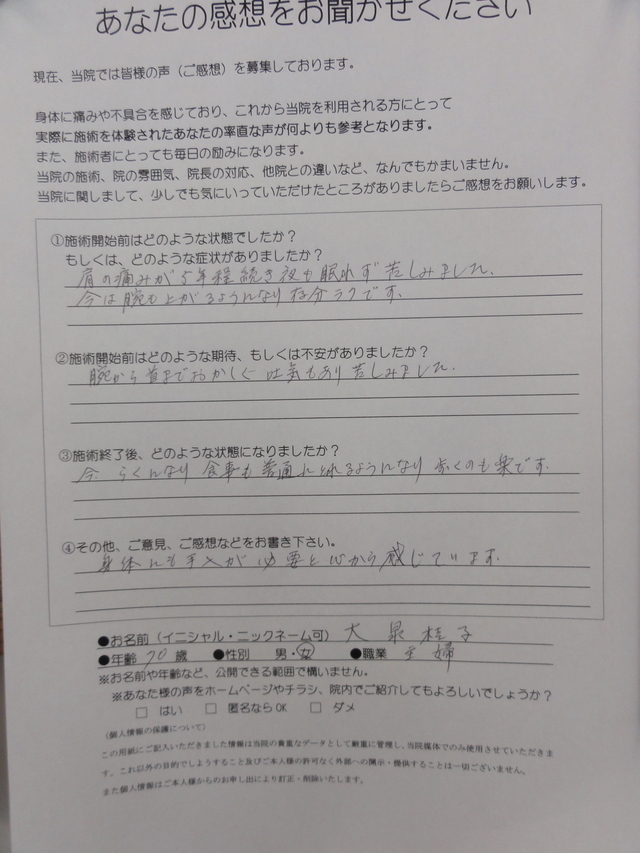 あなたの感想をお聞かせください
現在、当院では皆様の声（ご感想）を募集しております。
身体に痛みや不具合を感じており、これから当院を利用される方にとって
実際に施術を体験されたあなたの率直な声が何よりも参考となります。
また、施術者にとっても毎日の励みになります。
当院の施術、院の雰囲気、院長の対応、他院との違いなど、なんでもかまいません。
当院に関しまして、少しでも気にいっていただけたところがありましたらご感想をお願いします。
①施術開始前はどのような状態でしたか？
もしくは、どのような症状がありましたか？
肩の痛みが5年程続き夜も眠れず苦しみました。
今は腕も上がるようになり存分ラクです。
②施術開始前はどのような期待、もしくは不安がありましたか？
腕から首までおかしく吐気もあり苦しみました。
③施術終了後、どのような状態になりましたか？
今、らくになり食事も普通にとれるようになり歩くのも楽です。
④その他、ご意見、ご感想などをお書き下さい。
身体にも手入が必要と心から感じています。
●お名前（イニシャル・ニックネーム可）大泉桂子
●年齢 70 歳 ●性別 男・女 ●職業 主婦
※お名前や年齢など、公開できる範囲で構いません。
※あなた様の声をホームページやチラシ、院内でご紹介してもよろしいでしょうか？
□ はい □ 匿名ならOK □ ダメ
（個人情報の保護について）
この用紙にご記入いただきました情報は当院の貴重なデータとして厳重に管理し、当院媒体でのみ使用させていただきま
す。これ以外の目的でしようすること及びご本人様の許可なく外部への開示・提供することは一切ございません。
また個人情報はご本人様からのお申し出により訂正・削除いたします。